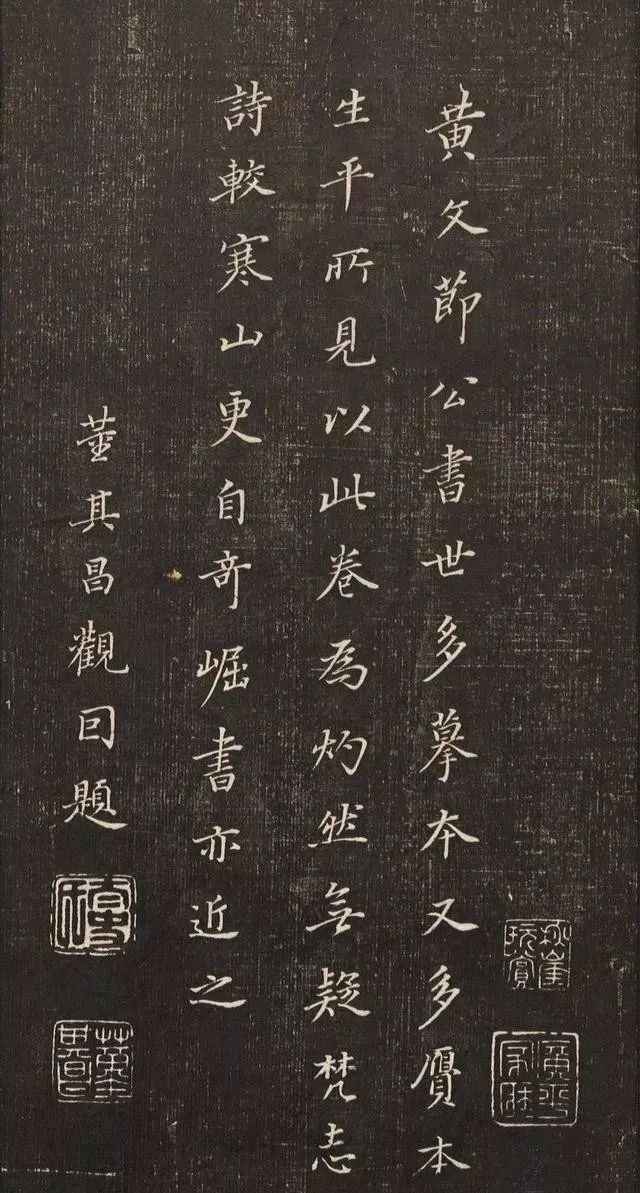 黄文節公書世多摹本又多贋本
生平所見以此卷為灼然無疑梵志
詩較寒山更自奇崛書亦近之
董其昌觀囙題